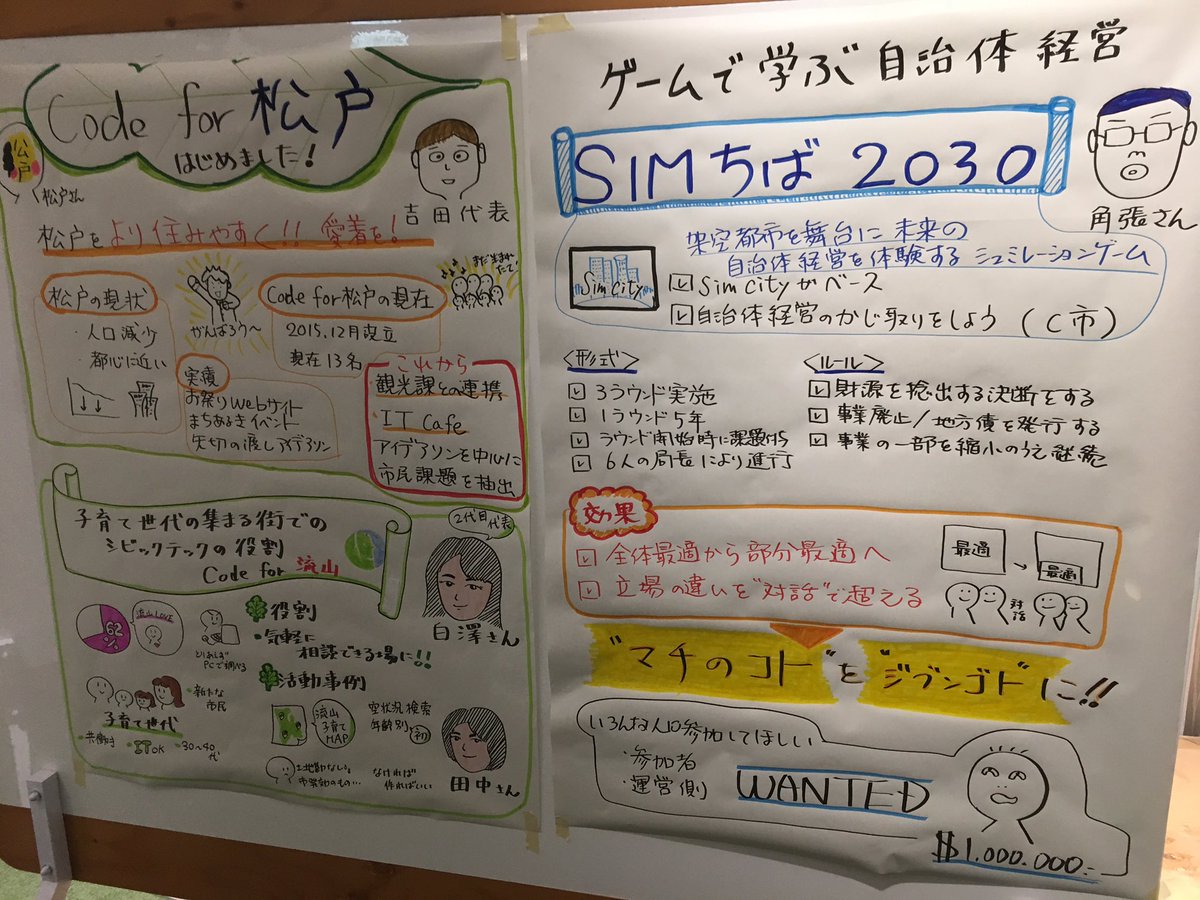 Code for 松戸
はじめました!
松戸
松戸さん
吉田代表
松戸をより住みやすく!! 愛着を!
松戸の現状
・人口減少
・都心に近い
がんばろう〜
Code for 松戸の現在
2015.12月設立
現在13名
実績
お祭りWebサイト
まちあるきイベント
矢切の渡しアイデアソン
これから
観光課との連携
・IT Cafe
アイデアソンを中心に
市民課題を抽出
子育て世代の集まる街での
シビックテックの役割
Code for 流山
2代目代表
白澤さん
62%
流山LOVE
とりあえず
PCで調べる
役割
・気軽に
相談できる場に!!
活動事例
・新たな
市民
子育て世代
・共働き ・IT OK ・30〜40代
流山
子育て
MAP
空状況検索
年齢別
土地勘ない
なければ
作ればいい
田中さん
ゲームで学ぶ自治体経営
SIMちば 2030
角張さん
架空都市を舞台に未来の
自治体経営を体験するシュミレーションゲーム
Sim City
Sim Cityがベース
自治体経営のかじ取りをしよう (C市)
<形式>
3ラウンド実施
1ラウンド5年
ラウンド開始時に課題付与
6人の局長により進行
<ルール>
財源を捻出する決断をする
事業廃止/地方債を発行する
事業の一部を縮小のうえ継続
効果
全体最適から部分最適へ
立場の違いを"対話"で超える
最適 → 最適
対話
"マチのコト"を"ジブンゴト"に!!
いろんな人に参加してほしい
・参加者
・運営側
WANTED
$1.000.000.-